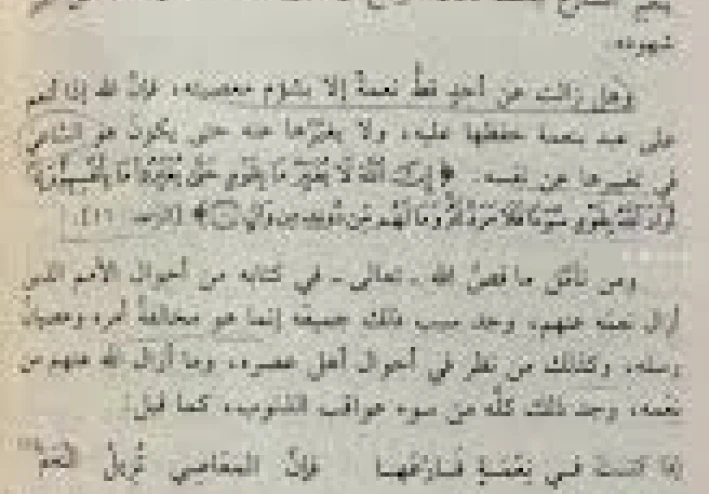 شهوده.
وهل زالت عن أحدٍ قطُّ نعمةٌ إلا بشؤم معصيته، فإنَّ لله إذا أنعم
على عبد بنعمة حفظها عليه، ولا يغيّرها عنه حتى يكونَ هو الساعي
في تغييرها عن نفسه. ﴿إِنَّ اللَّهَ لَا يُغَيِّرُ مَا بِقَوْمٍ حَتَّى يُغَيِّرُوا مَا بِأَنْفُسِهِمْ وَإِذَا
أَرَادَ اللَّهُ بِقَوْمٍ سُوءًا فَلَا مَرَدَّ لَهُ وَمَا لَهُمْ مِنْ دُونِهِ مِنْ وَالٍ﴾ [الرعد:
ومن تأمَّل ما قصَّ الله ـ تعالى ـ في كتابه من أحوال الأمم الذين
أزال نعمه عنهم، وجد سبب ذلك جميعه إنما هو مخالفةُ أمره وعصيانُ
رسله، وكذلك من نظر في أحوال أهل عصره، وما أزال الله عنهم من
نعمه، وجد ذلك كلَّه من سوء عواقب الذنوب، كما قيل:
إذا كنتَ في نِعْمَةٍ فَارْعَها فإنَّ المَعَاصِي تُزِيلُ النِّعَمْ